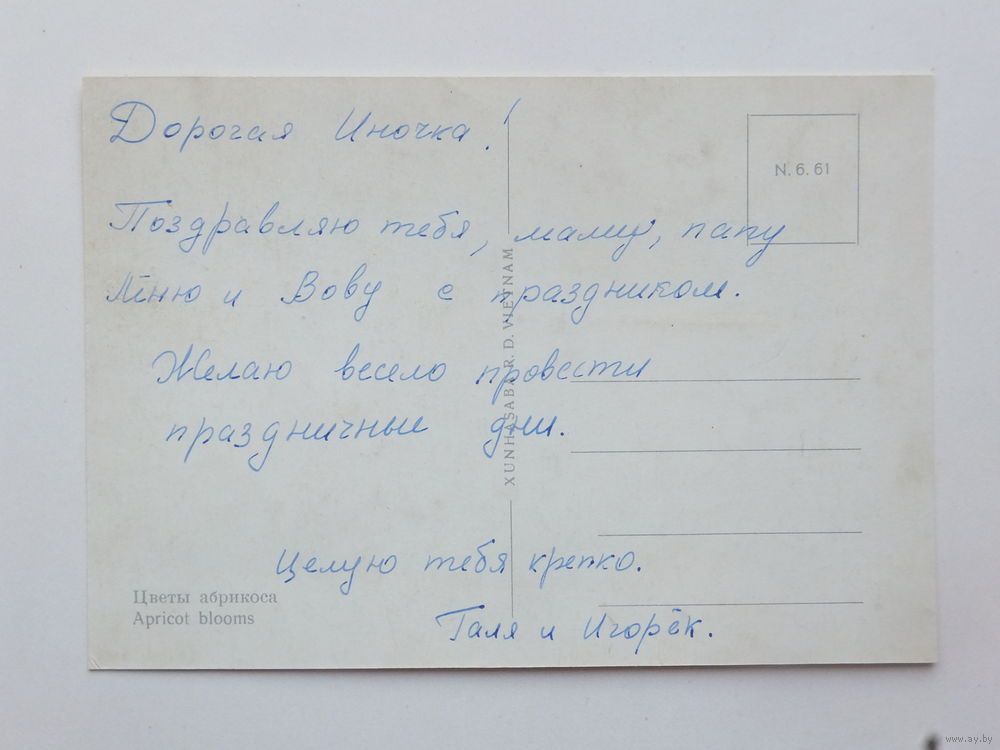 Дорогая Иночка!
N. 6. 61
Поздравляю тебя, маму, папу
Лёню и Вову с праздником.
Желаю весело провести
праздничные дни.
Целую тебя крепко.
Таля и Игорёк.
XUNHASABA R. D. VIETNAM
Цветы абрикоса
Apricot blooms
www.ay.by